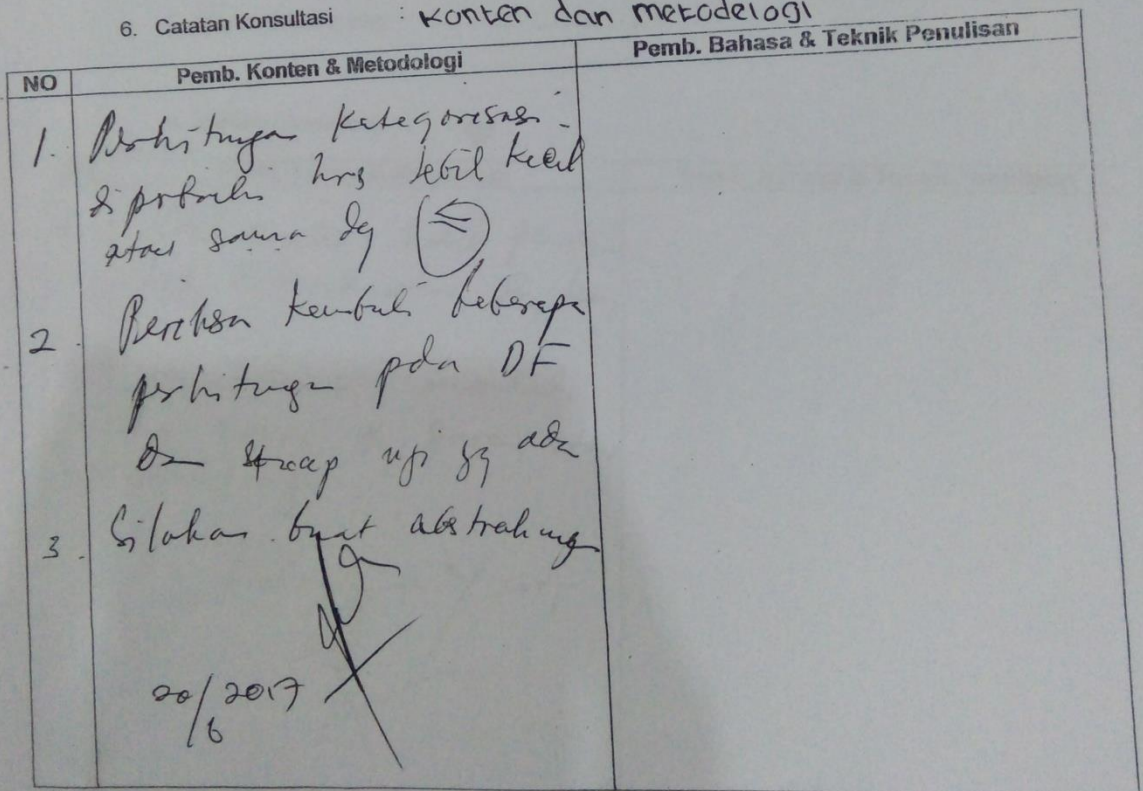 6. Catatan Konsultasi : Konten dan metodelogi
NO Pemb. Konten & Metodologi Pemb. Bahasa & Teknik Penulisan
1. Perhitungan Kategorisasi
diperbaiki hrs lebil kecil
atau sama dg (≤)
2 Periksa kembali beberapa
perhitungan pda DF
Dan setiap uji yg ada
3. Silakan buat abstraknya
20/6 2017